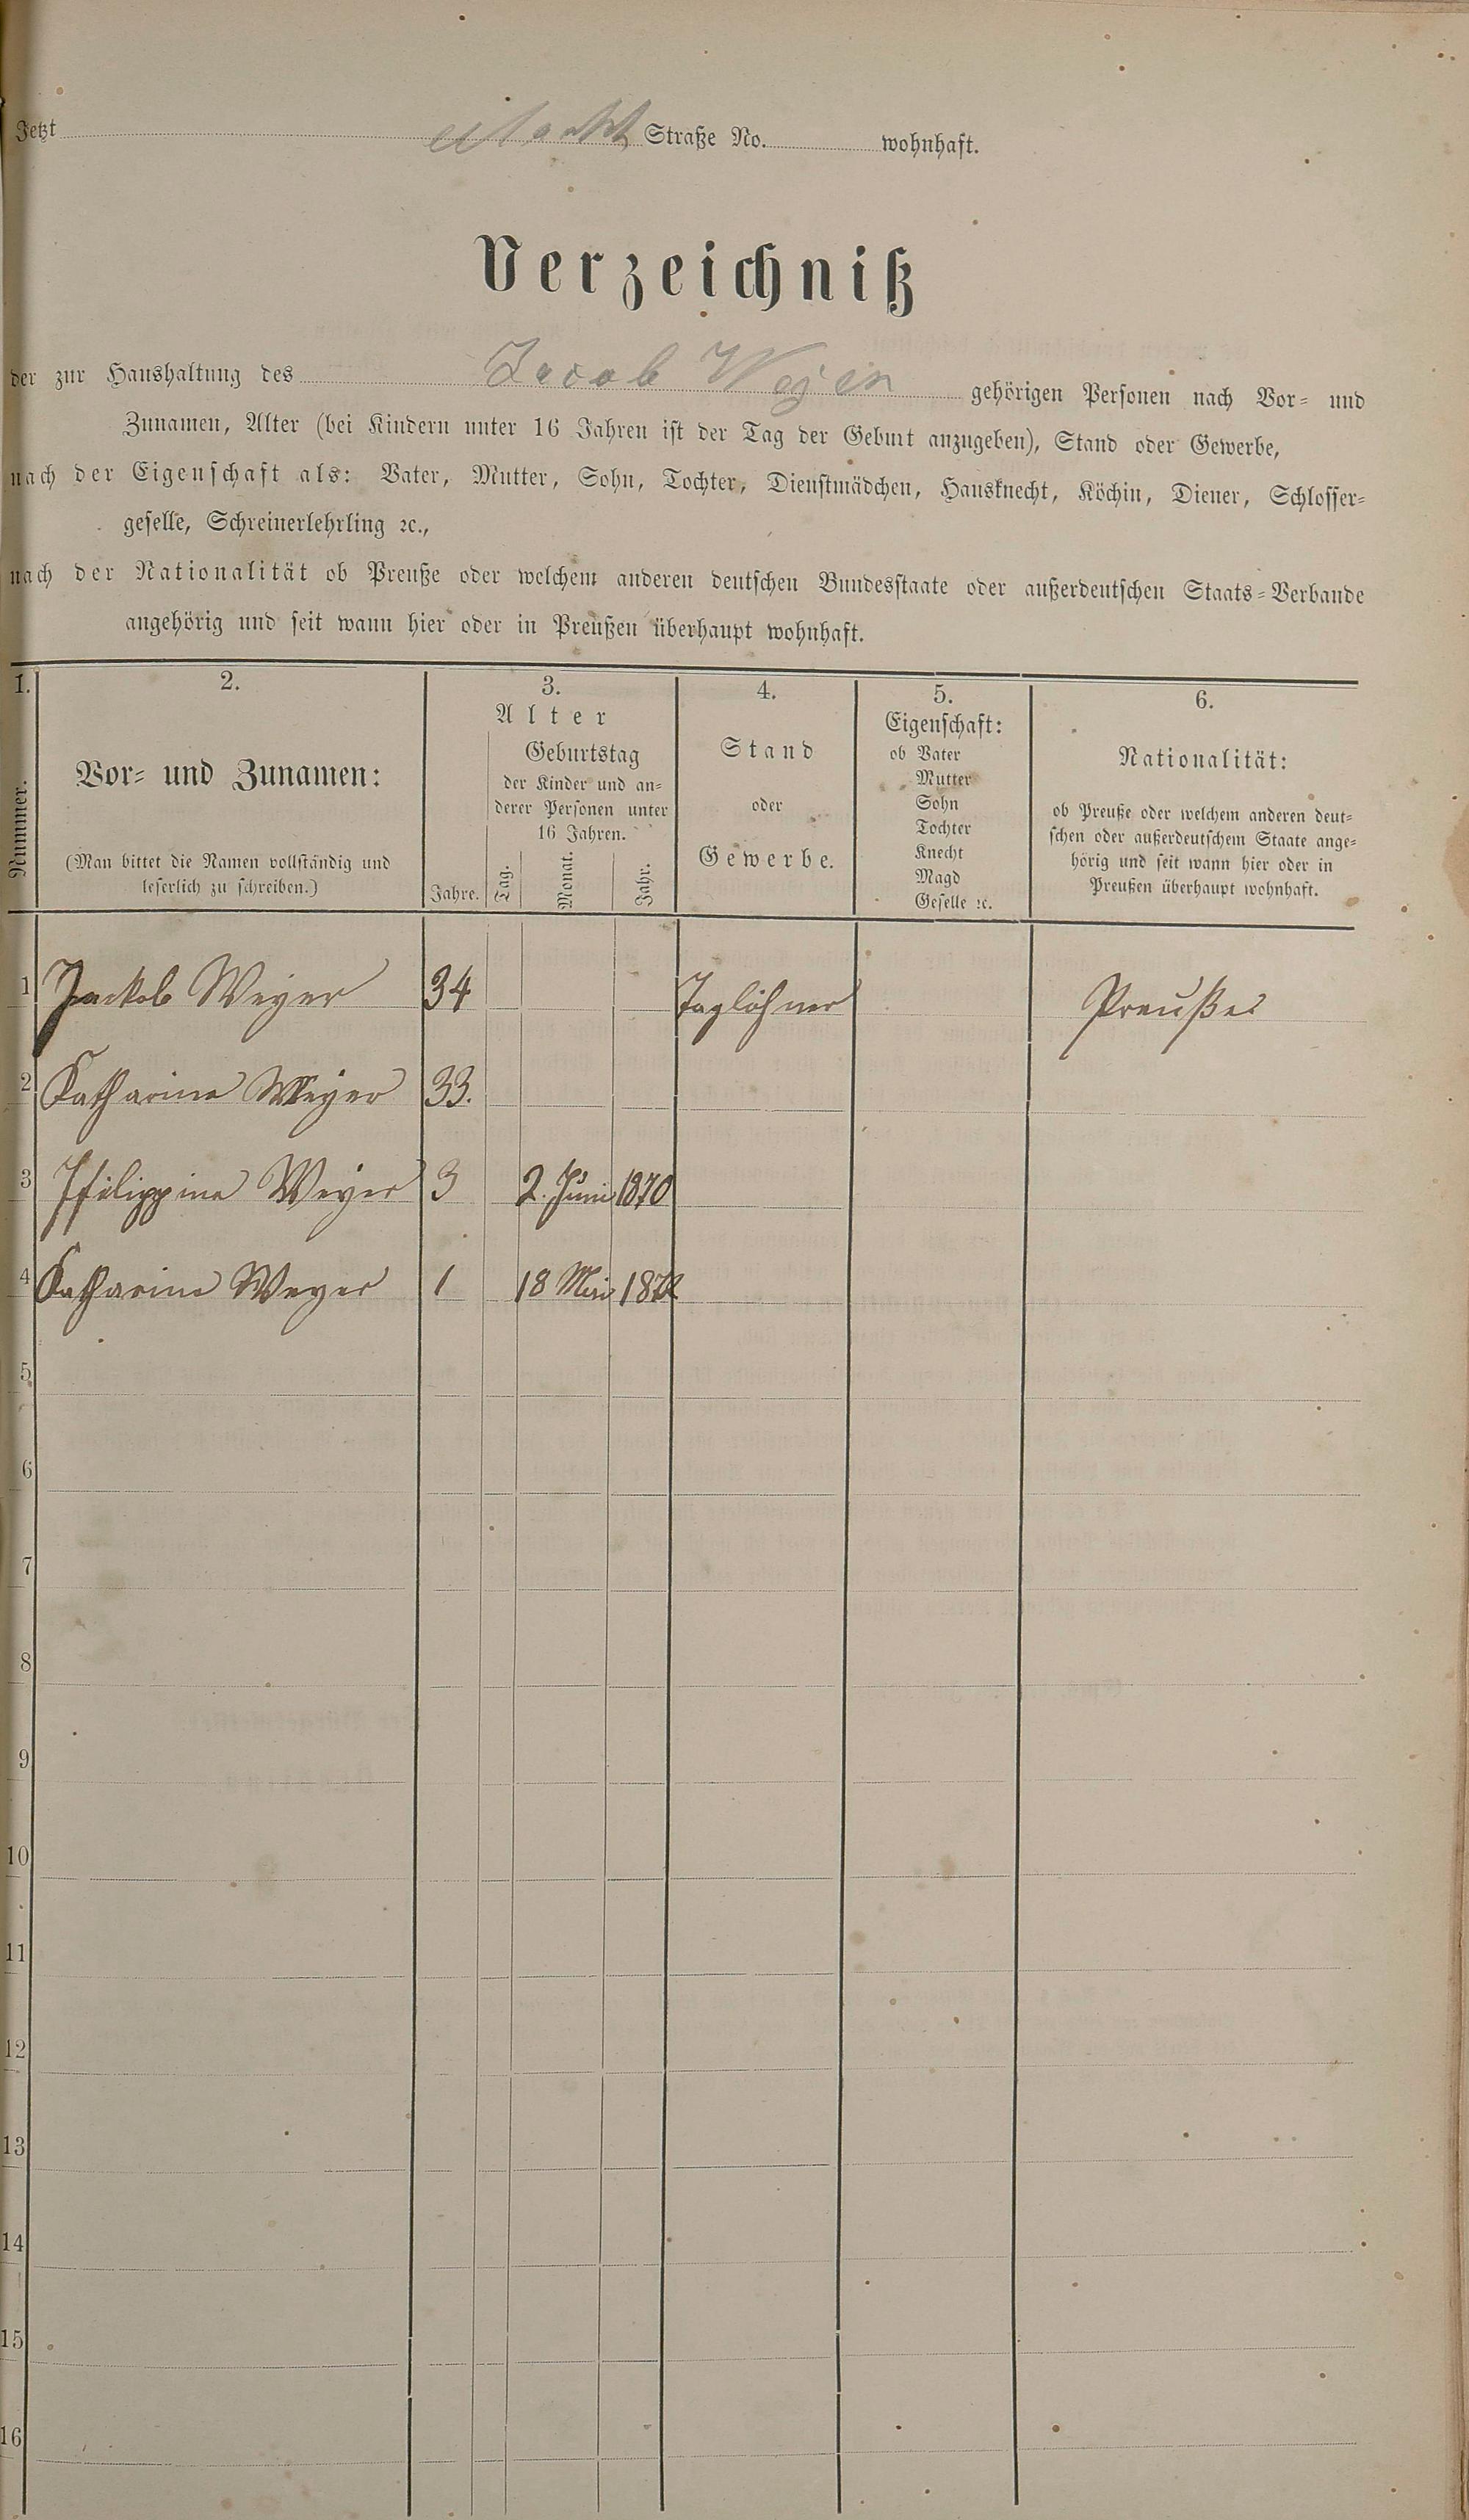 Jetzt Markt Straße No. wohnhaft.
Verzeichniß
der zur Haushaltung des Jacob Weyer gehörigen Personen nach Vor- und
Zunamen, Alter (bei Kindern unter 16 Jahren ist der Tag der Geburt anzugeben), Stand oder Gewerbe,
nach der Eigenschaft als: Vater, Mutter, Sohn, Tochter, Dienstmädchen, Hausknecht, Köchin, Diener, Schlosser-
geselle, Schreinerlehrling ꝛc.,
nach der Nationalität ob Preuße oder welchem anderen deutschen Bundesstaate oder außerdeutschen Staats-Verbande
angehörig und seit wann hier oder in Preußen überhaupt wohnhaft.
1.
Nummer.
2.
Vor- und Zunamen:
(Man bittet die Namen vollständig und
leserlich zu schreiben.)
3.
Alter
Jahre.
Geburtstag
der Kinder und an-
derer Personen unter
16 Jahren.
Tag. Monat. Jahr.
4.
Stand
oder
Gewerbe.
5.
Eigenschaft:
ob Vater
Mutter
Sohn
Tochter
Knecht
Magd
Geselle ꝛc.
6.
Nationalität:
ob Preuße oder welchem anderen deut-
schen oder außerdeutschem Staate ange-
hörig und seit wann hier oder in
Preußen überhaupt wohnhaft.
1 Jackob Weyer 34 Taglöhner Preußes
2 Katharina Weyer 33.
3 Philippina Weyer 3 2. Juni 1870
4 Katharina Weyer 1 18 1872
5
6
7
8
9
10
11
12
13
14
15
16